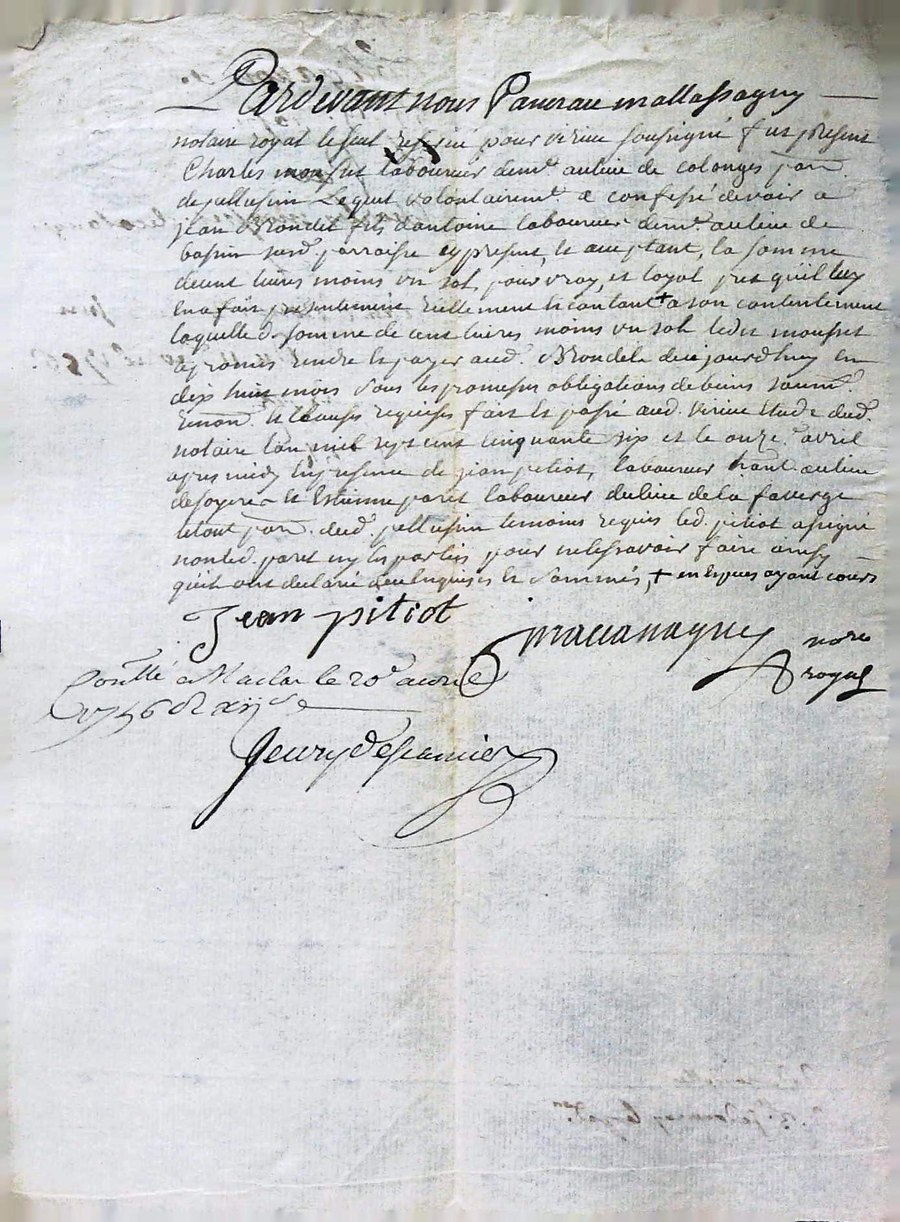 Pardevant nous Pancrace mallassagny
notaire royal le seul reservé pour virieu soussigné fut present
Charles monfut laboureur demt. au lieu de colonges parr.
de pellussin Lequel volontairemt. a confessé devoir a
jean Brondel fils d'antoine laboureur demt. au lieu de
bassin susd. parroisse cy present, et acceptant, la somme
de cent livres moins un sol, pour vray, et loyal pret qu'il luy
en a fait presentement reellement et contant + a son contentement
laquelle d. somme de cent livres moins un sol ledit monfut
a promis rendre et payer aud. Brondel de ce jourdhuy en
dix huit mois sous les promesses obligations de biens soum.
renon. et clauses requises fait et passé aud. virieu etude dud.
notaire l'an mil sept cent cinquante six et le onze avril
apres midy en presence de jean pitiot, laboureur habt. au lieu
de soyere et Estienne paret laboureur du lieu de la faverge
le tout parr. dud. pellussin temoins requis led. pitiot a signé
non led. paret ny les parties pour ne le scavoir faire ainsy
qu'ils ont declaré de ce enquis et sommés, + en especes ayant cours
Jean pitiot
nore
royal
Conllé a Maclas le 20e avril
1756